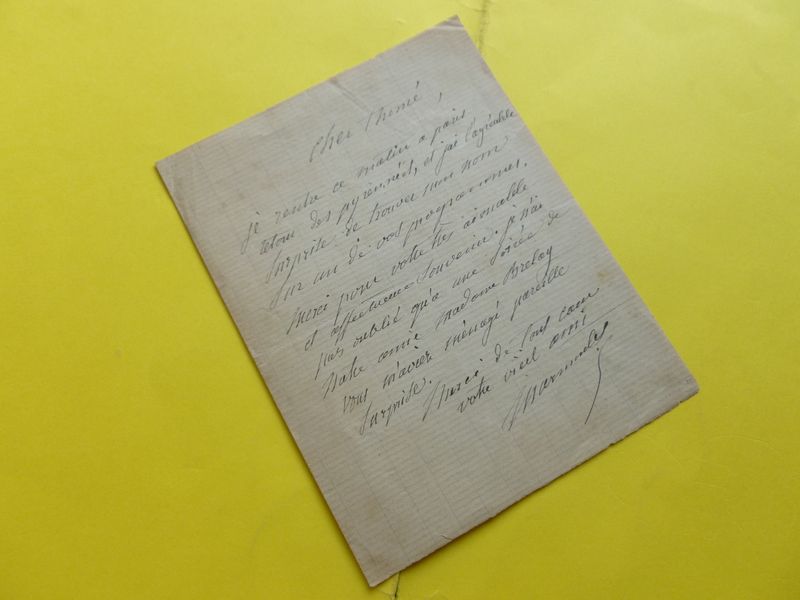 Cher Thomé,
je rentre ce matin a paris
retour des pyrennées, et j'ai l'agréable
surprise de trouver mon nom
sur un de vos programmes.
Merci pour votre très aimable
et affectueux souvenir. je n'ai
pas oublié qu'a une soirée de
Notre amie Madame Breloy
vous m'aviez ménagé pareille
surprise. Merci de tout cœur
votre vieil ami
Marmontel